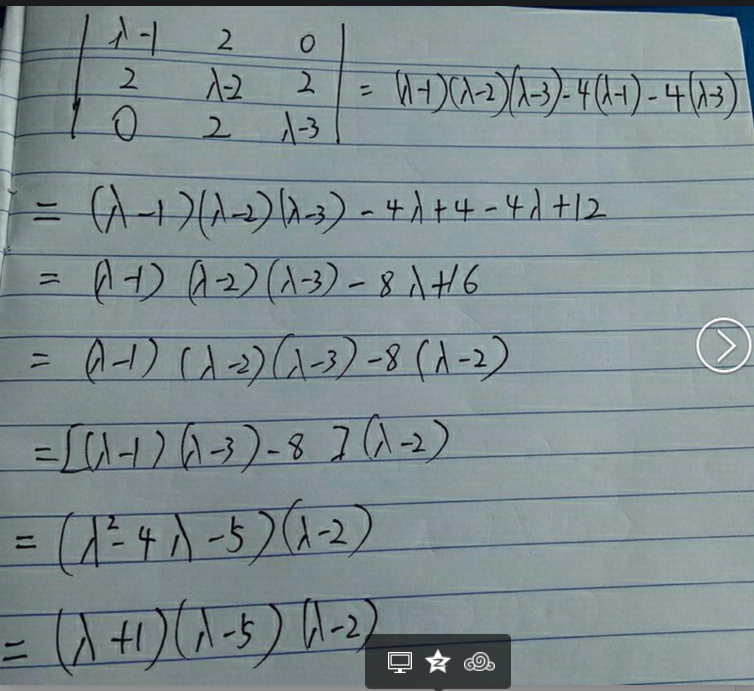 | λ-1 2 0 |
| 2 λ-2 2 | = (λ-1)(λ-2)(λ-3)-4(λ-1)-4(λ-3)
| 0 2 λ-3 |
= (λ-1)(λ-2)(λ-3)-4λ+4-4λ+12
= (λ-1)(λ-2)(λ-3)-8λ+16
= (λ-1)(λ-2)(λ-3)-8(λ-2)
=[(λ-1)(λ-3)-8](λ-2)
= (λ²-4λ-5)(λ-2)
= (λ+1)(λ-5)(λ-2)